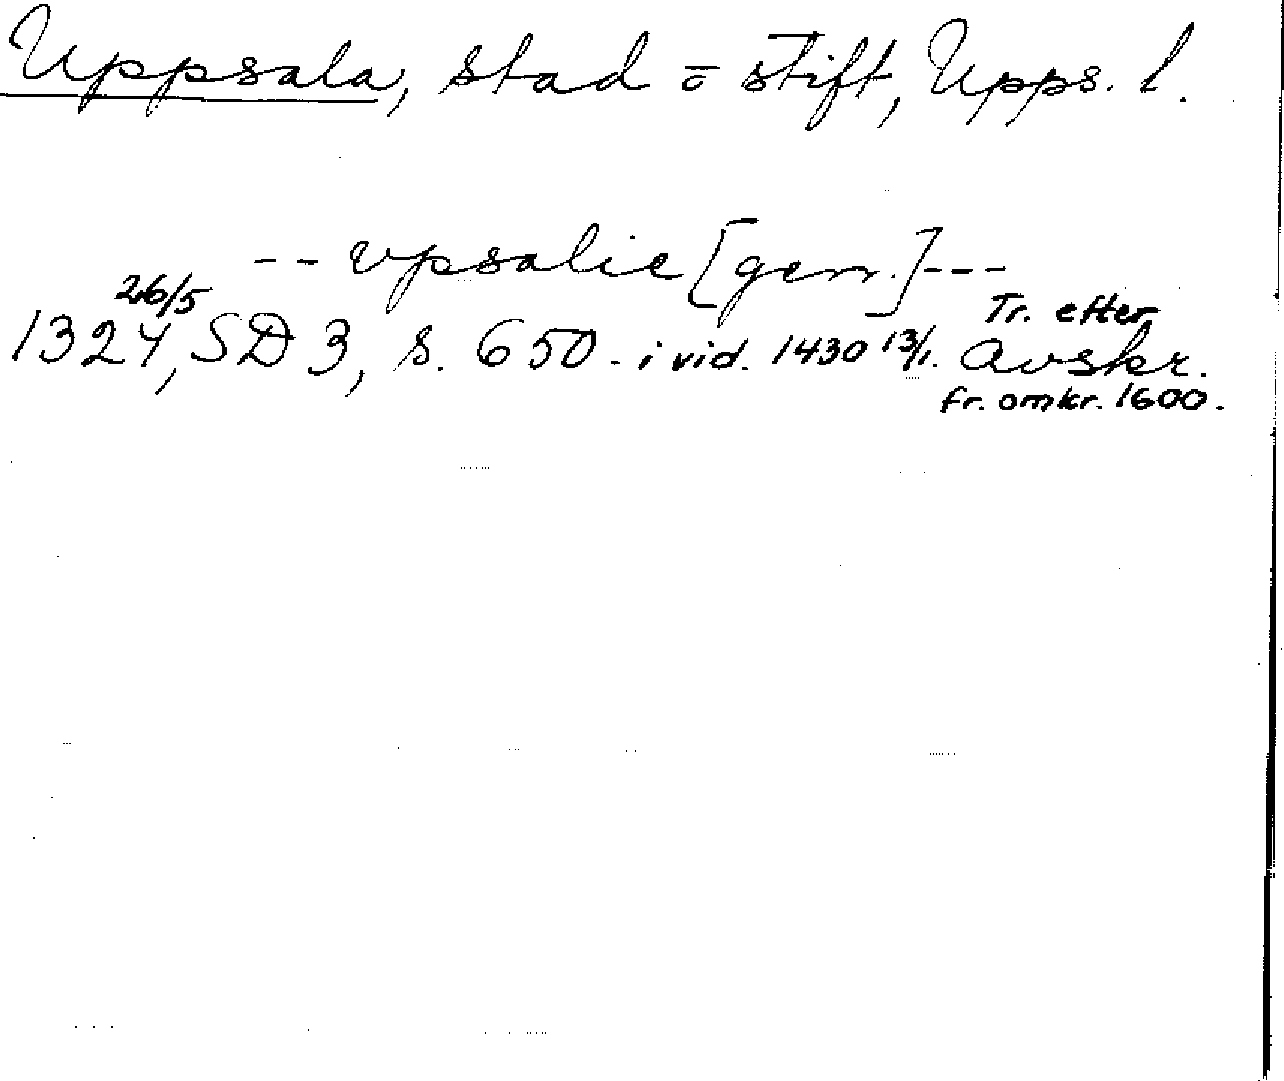 Uppsala, stad o stift, Upps. l.
-- vpsalie [gen.] ---
26/5
1324, SD 3, s. 650 - i vid. 1430 13/1. Tr. efter
Avskr.
fr. omkr. 1600.